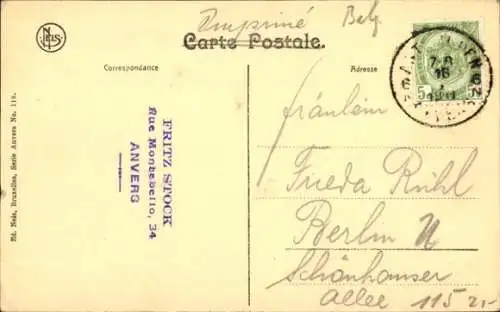 Imprimé Belg.
Carte Postale.
Correspondance
Adresse
NELS
5 5
Ed. Nels, Bruxelles, Serie Anvers No. 119.
FRITZ STOCK
Rue Montebello, 34
ANVERS
Fräulein
Frieda Rühl
Berlin N
Schönhauser
Allee 115